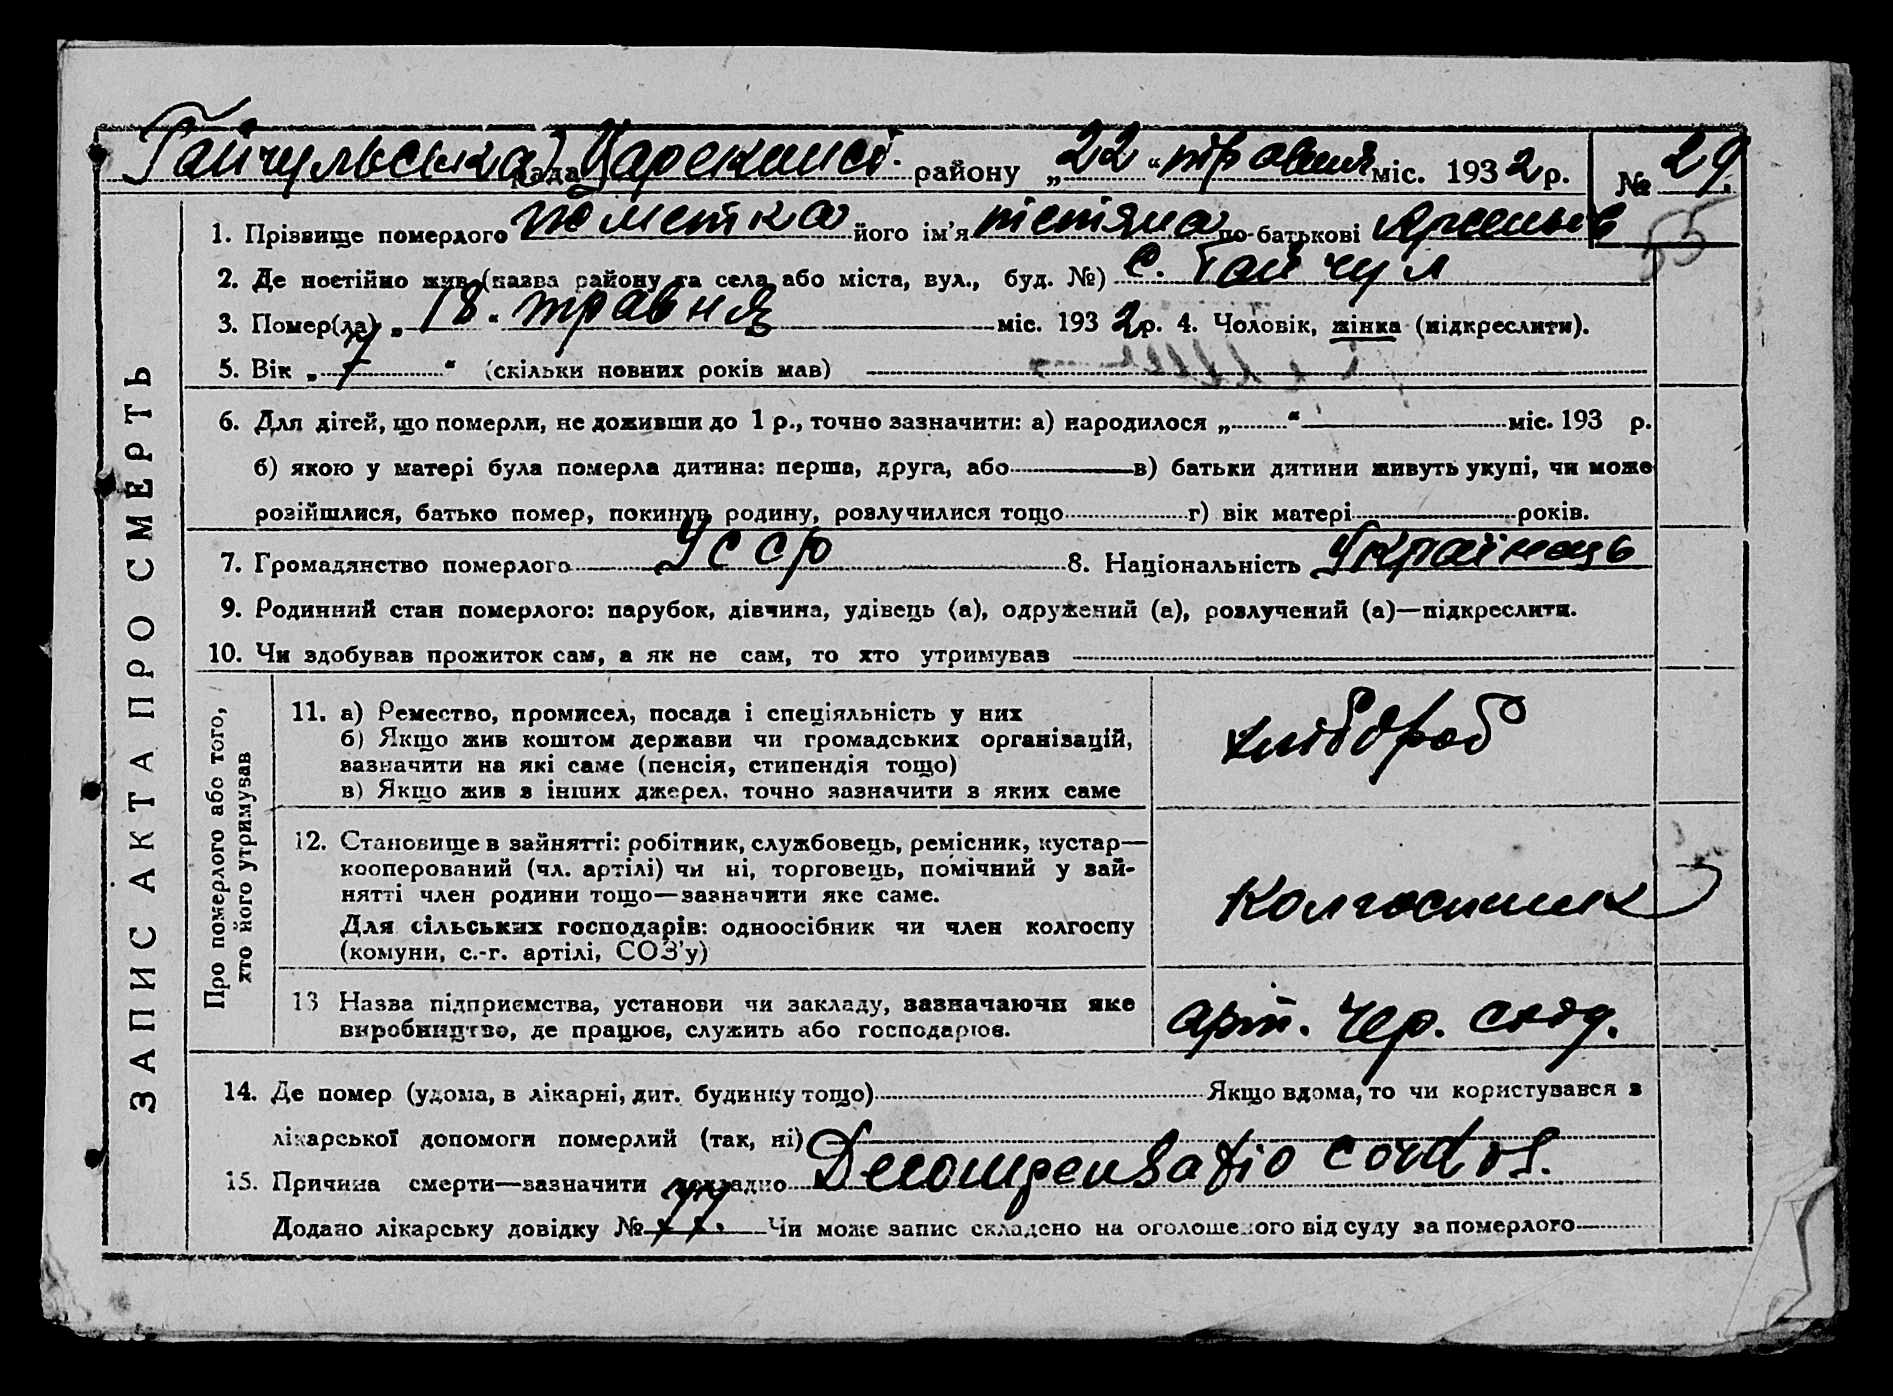 Гайчульська рада Царекинсь. району „22“ травня міс. 1932 р. № 29.
55
1. Прізвище померлого Пометка його ім'я Тетяна по-батькові Арсеньев
2. Де постійно жив (назва району та села або міста, вул., буд. №) с. Гайчул
3. Помер(ла) „18“ травня міс. 1932 р. 4. Чоловік, жінка (підкреслити).
5. Вік „7“ (скільки повних років мав)
6. Для дітей, що померли, не доживши до 1 р., точно зазначити: а) народилося „ “ міс. 193 р.
б) якою у матері була померла дитина: перша, друга, або в) батьки дитини живуть укупі, чи може
розійшлися, батько помер, покинув родину, розлучилися тощо г) вік матері років.
7. Громадянство померлого УССР 8. Національність Українець
9. Родинний стан померлого: парубок, дівчина, удівець (а), одружений (а), розлучений (а)—підкреслити.
10. Чи здобував прожиток сам, а як не сам, то хто утримував
ЗАПИС АКТА ПРО СМЕРТЬ
Про померлого або того,
хто його утримував
11. а) Ремество, промисел, посада і спеціяльність у них
б) Якщо жив коштом держави чи громадських організацій,
зазначити на які саме (пенсія, стипендія тощо)
в) Якщо жив з інших джерел, точно зазначити з яких саме
хлібороб
12. Становище в зайнятті: робітник, службовець, ремісник, кустар—
кооперований (чл. артілі) чи ні, торговець, помічний у зай-
нятті член родини тощо—зазначити яке саме.
Для сільських господарів: одноосібник чи член колгоспу
(комуни, с.-г. артілі, СОЗ'у)
Колгоспник
13 Назва підприємства, установи чи закладу, зазначаючи яке
виробництво, де працює, служить або господарює.
арт. Чер. схід.
14. Де помер (удома, в лікарні, дит. будинку тощо) Якщо вдома, то чи користувався з
лікарської допомоги померлий (так, ні)
15. Причина смерти—зазначити докладно Decompensatio cordis.
Додано лікарську довідку № 77. Чи може запис складено на оголошеного від суду за померлого